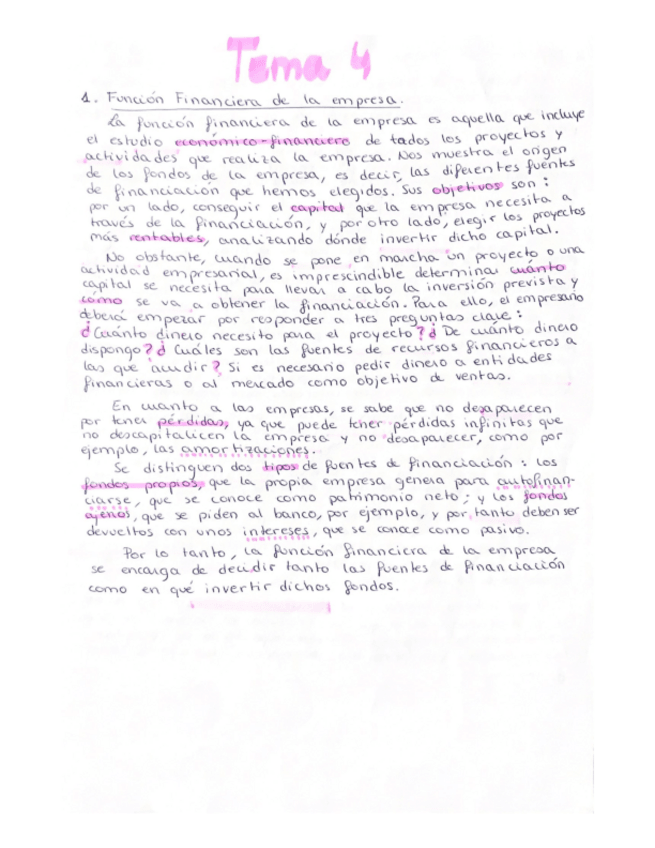 Tema 4
1. Función Financiera de la empresa.
La función financiera de la empresa es aquella que incluye
el estudio económico-financiero de todos los proyectos y
actividades que realiza la empresa. Nos muestra el origen
de los fondos de la empresa, es decir, las diferentes fuentes
de financiación que hemos elegidos. Sus objetivos son:
por un lado, conseguir el capital que la empresa necesita a
través de la financiación, y por otro lado, elegir los proyectos
más rentables, analizando dónde invertir dicho capital.
No obstante, cuando se pone en marcha un proyecto o una
actividad empresarial, es imprescindible determinar cuánto
capital se necesita para llevar a cabo la inversión prevista y
cómo se va a obtener la financiación. Para ello, el empresario
deberá empezar por responder a tres preguntas clave:
¿Cuánto dinero necesito para el proyecto? ¿De cuánto dinero
dispongo? ¿Cuáles son las fuentes de recursos financieros a
las que acudir? Si es necesario pedir dinero a entidades
financieras o al mercado como objetivo de ventas.
En cuanto a las empresas, se sabe que no desaparecen
por tener pérdidas, ya que puede tener pérdidas infinitas que
no descapitalicen la empresa y no desaparecer, como por
ejemplo, las amortizaciones.
Se distinguen dos tipos de fuentes de financiación: los
fondos propios, que la propia empresa genera para autofinan-
ciarse, que se conoce como patrimonio neto; y los fondos
ajenos, que se piden al banco, por ejemplo, y por tanto deben ser
devueltos con unos intereses, que se conoce como pasivo.
Por lo tanto, la función financiera de la empresa
se encarga de decidir tanto las fuentes de financiación
como en qué invertir dichos fondos.